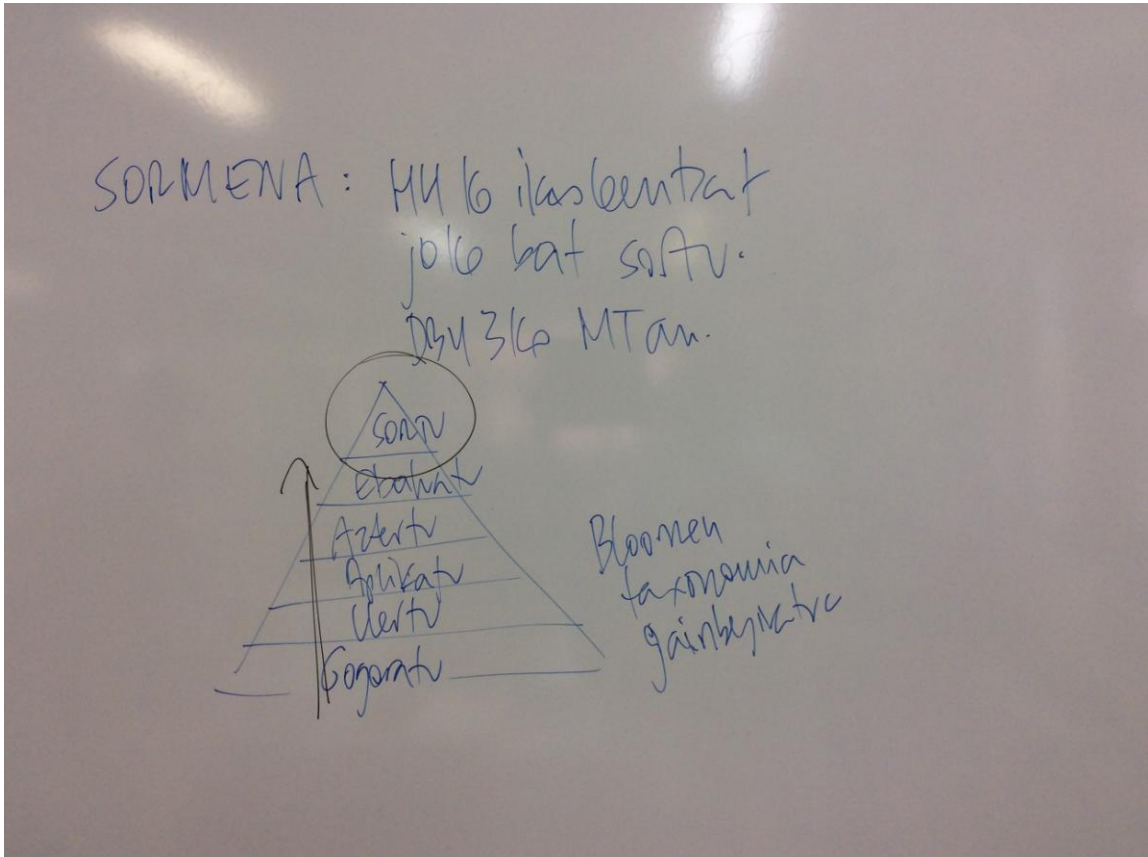 SORMENA: HHko ikasleentzat
joko bat sortu.
DBH 3ko MTan.
SORTU
Ebaluatu
Aztertu
Aplikatu
Ulertu
Gogoratu
Bloomen
taxonomia
gainbegiratua